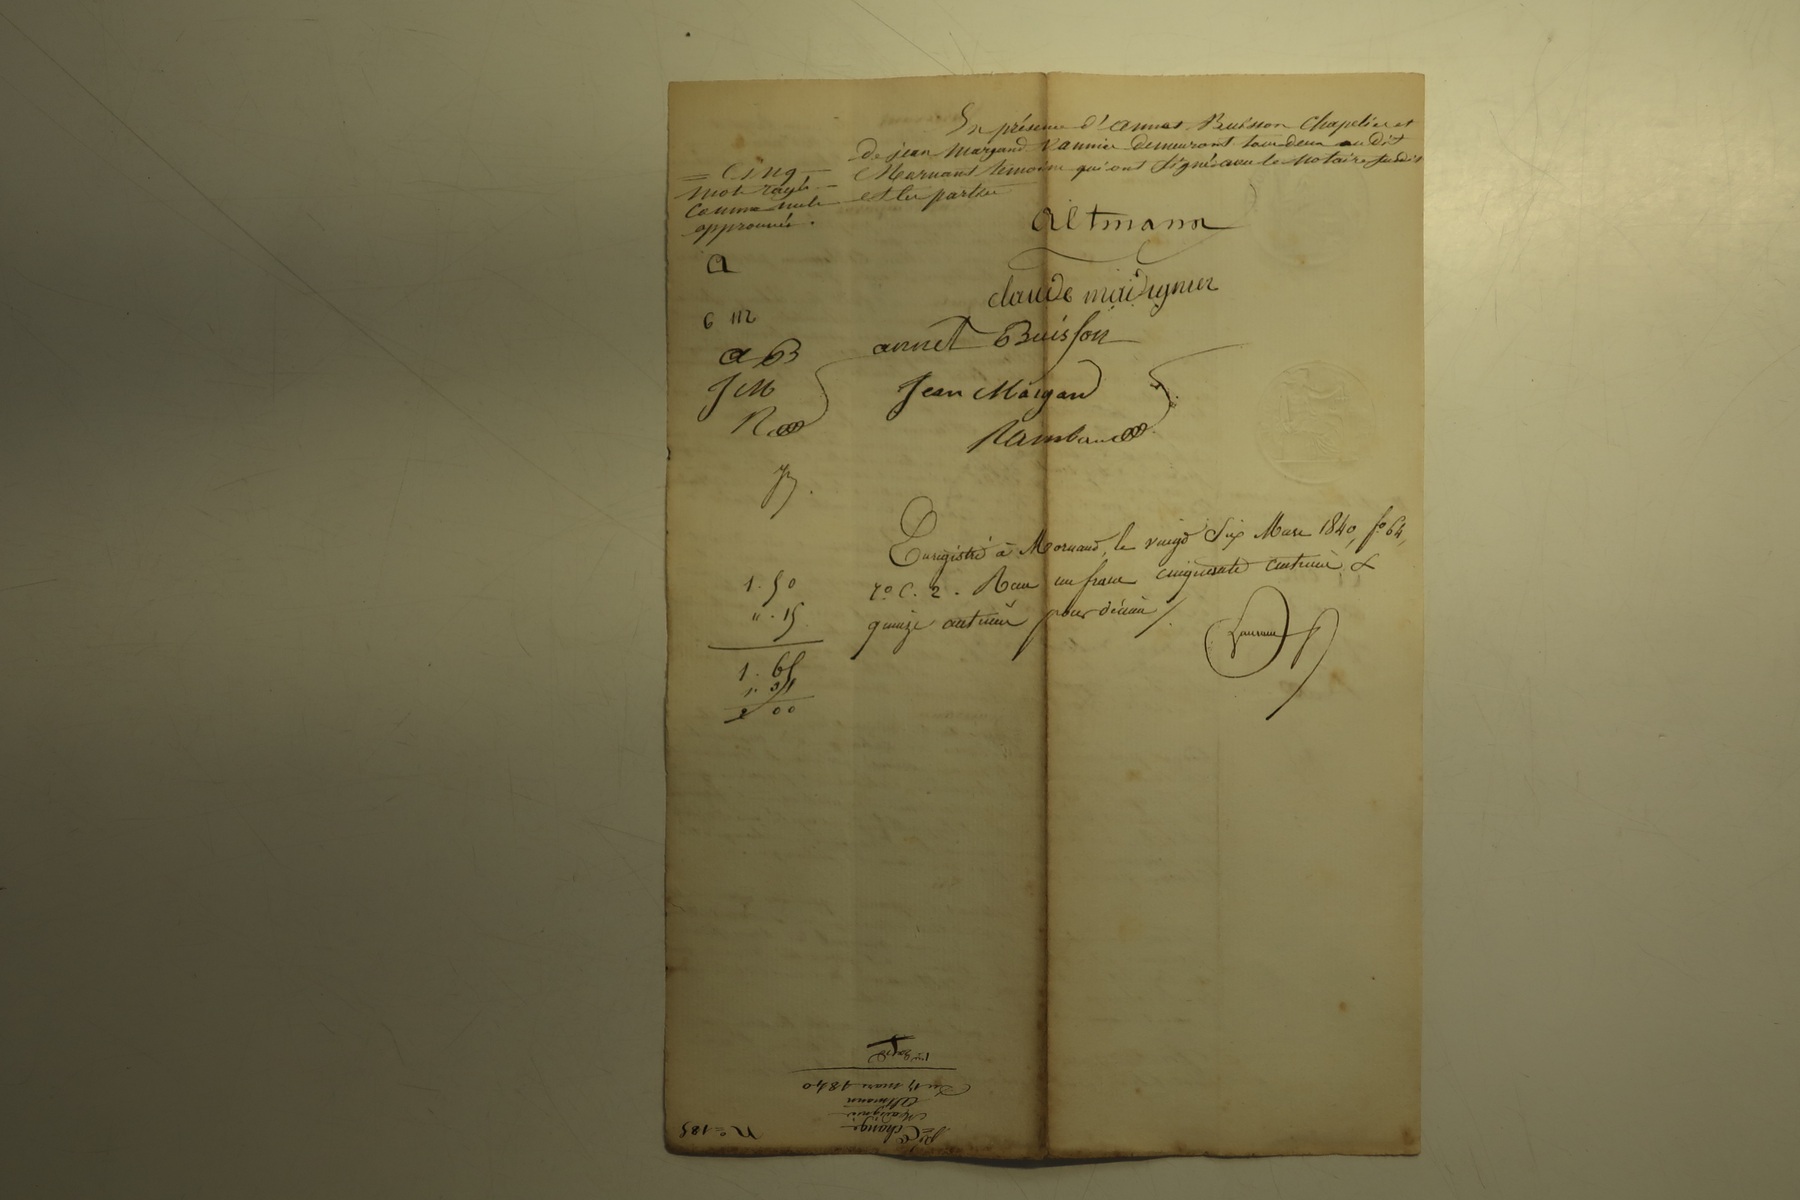 En présence d'annet Buisson Chapelier et
de jean Margand vannier demeurant tous deux au dit
Mornant temoins qui ont signé avec le Notaire susdit
et les parties
= Cinq
mots rayés
comme nuls
approuvés.
Altmann
claude maVignier
annet Buisson
Jean Margand
Rambaud
A
c m
a B
J M
R
Enregistré à Mornand, le vingt Six Mars 1840, fo 64,
ro C. 2. Reçu un franc cinquante centimes &
quinze centimes pour décime /.
1. 50
" . 15
1. 65
2 00
Nº 185
Pr Echange
Altmann
Du 17 mars 1840
1re Expé